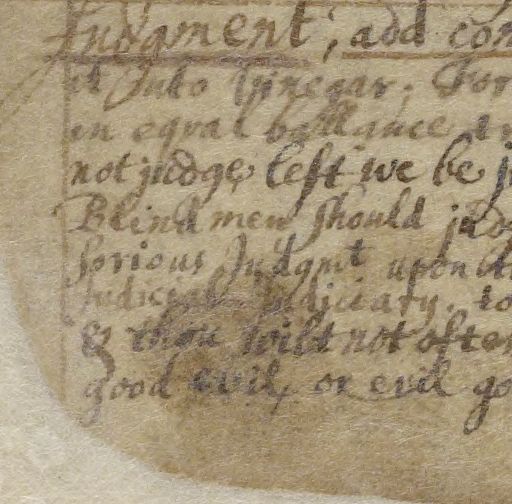 Judgment; add con
it Into Vinegar; For
in equal ballance
not judge, lest we be j
Blind men should jud
sorious Judgmt upon
Judicial Judiciary. to
& thou wilt not ofte
good evil, or evil go